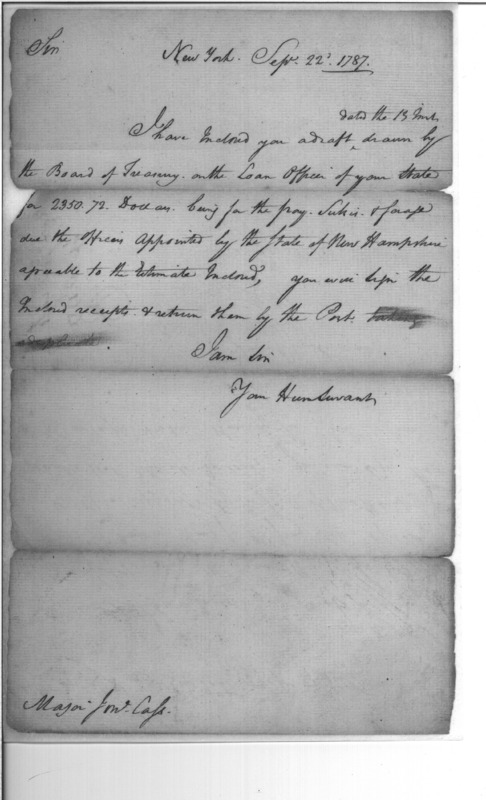 Sir
New York. Sepr. 22d. 1787.
dated the 13 Inst.
I have Inclosed you a draft ^ drawn by
the Board of Treasury. on the Loan Officer of your State
for 2350.72. Dollars. being for the pay. Subsis. & forage
due the officers Appointed by the State of New Hampshire
agreeable to the Estimate Inclosed, you will Sign the
Inclosed receipts & return them by the Post.
I am Sir
Your Hum Servant
Major Jona. Cass.